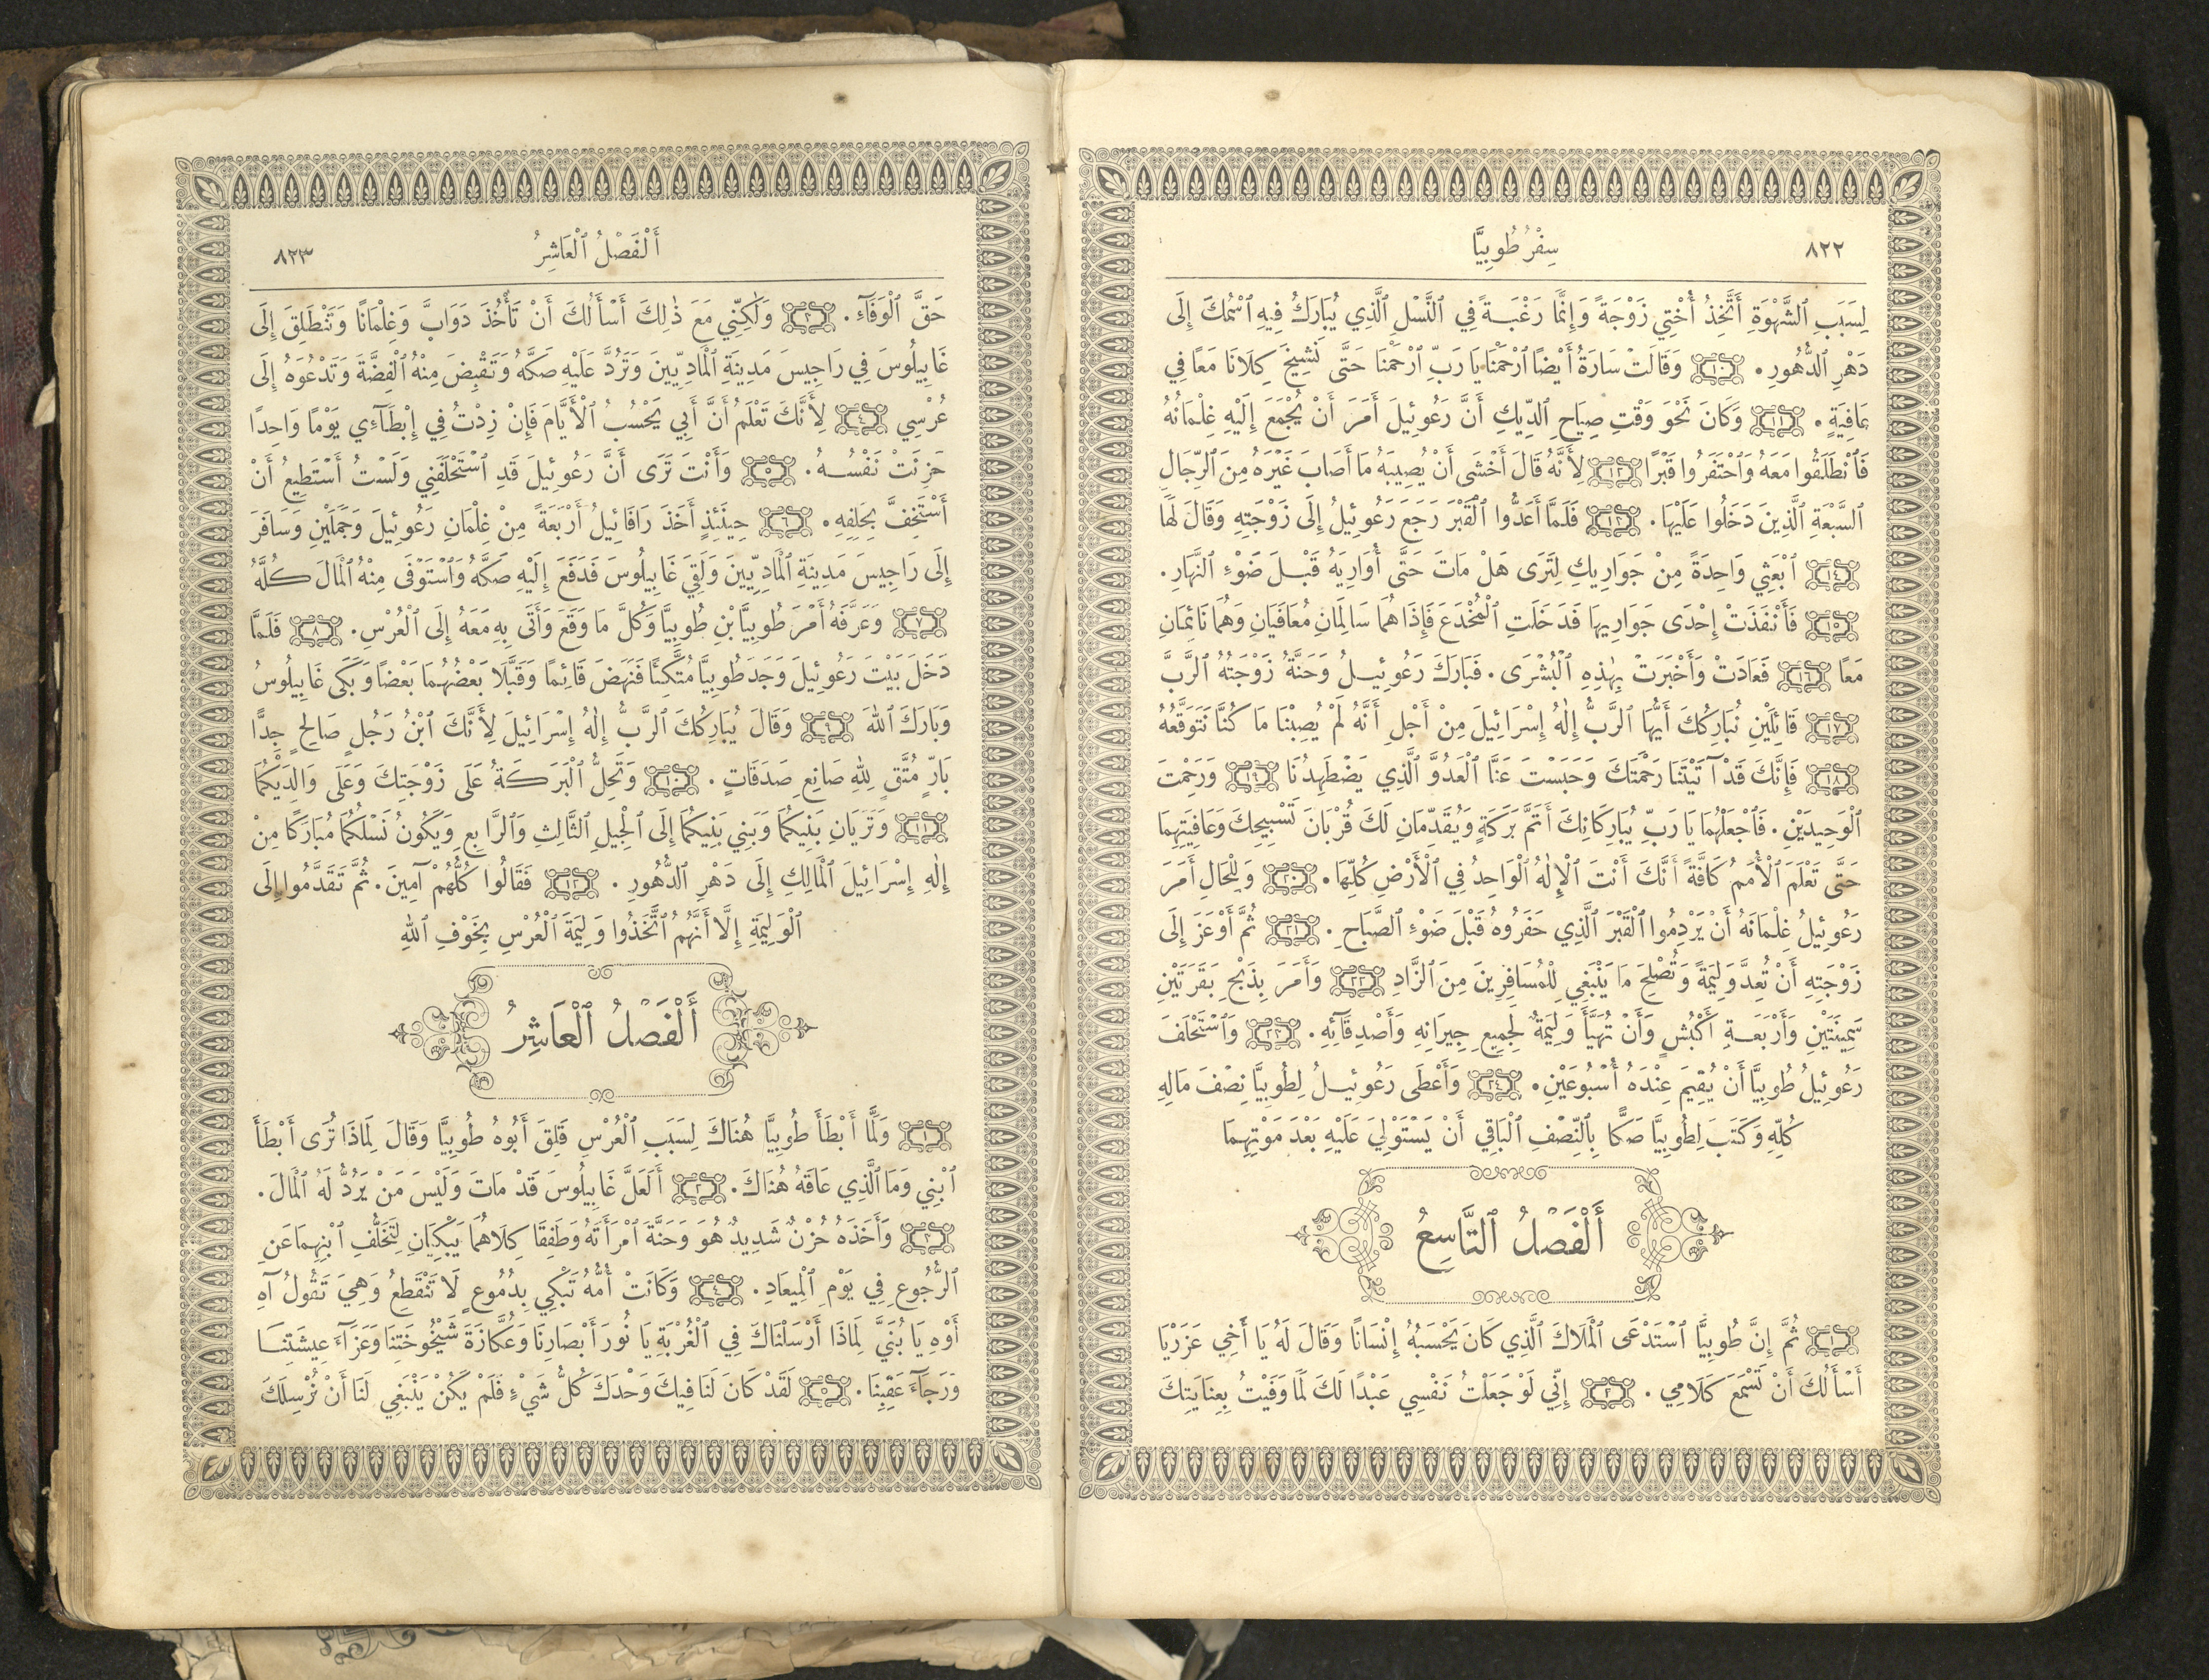 ٨٢٢
سِفْرُ طُوبِيَّا
لِسَبَبِ ٱلشَّهْوَةِ أَتَّخِذُ أُخْتِي زَوْجَةً وَإِنَّمَا رَغْبَةً فِي ٱلنَّسْلِ ٱلَّذِي يُبَارَكُ فِيهِ ٱسْمُكَ إِلَى
دَهْرِ ٱلدُّهُورِ. ١٠ وَقَالَتْ سَارَةُ أَيْضًا ٱرْحَمْنَا يَا رَبِّ ٱرْحَمْنَا حَتَّى نَشِيخَ كِلَانَا مَعًا فِي
عَافِيَةٍ. ١١ وَكَانَ نَحْوَ وَقْتِ صِيَاحِ ٱلدِّيكِ أَنَّ رَعُوئِيلَ أَمَرَ أَنْ يُجْمَعَ إِلَيْهِ غِلْمَانُهُ
فَٱنْطَلَقُوا مَعَهُ وَٱحْتَفَرُوا قَبْرًا ١٢ لِأَنَّهُ قَالَ أَخْشَى أَنْ يُصِيبَهُ مَا أَصَابَ غَيْرَهُ مِنَ ٱلرِّجَالِ
ٱلسَّبْعَةِ ٱلَّذِينَ دَخَلُوا عَلَيْهَا. ١٣ فَلَمَّا أَعَدُّوا ٱلْقَبْرَ رَجَعَ رَعُوئِيلُ إِلَى زَوْجَتِهِ وَقَالَ لَهَا
١٤ ٱبْعَثِي وَاحِدَةً مِنْ جَوَارِيكِ لِتَرَى هَلْ مَاتَ حَتَّى أُوَارِيَهُ قَبْلَ ضَوْءِ ٱلنَّهَارِ.
١٥ فَأَنْفَذَتْ إِحْدَى جَوَارِيهَا فَدَخَلَتِ ٱلْمُخْدَعَ فَإِذَا هُمَا سَالِمَانِ مُعَافَيَانِ وَهُمَا نَائِمَانِ
مَعًا ١٦ فَعَادَتْ وَأَخْبَرَتْ بِهٰذِهِ ٱلْبُشْرَى. فَبَارَكَ رَعُوئِيلُ وَحَنَّةُ زَوْجَتُهُ ٱلرَّبَّ
١٧ قَائِلَيْنِ نُبَارِكُكَ أَيُّهَا ٱلرَّبُّ إِلٰهُ إِسْرَائِيلَ مِنْ أَجْلِ أَنَّهُ لَمْ يُصِبْنَا مَا كُنَّا نَتَوَقَّعُهُ
١٨ فَإِنَّكَ قَدْ آتَيْتَنَا رَحْمَتَكَ وَحَبَسْتَ عَنَّا ٱلْعَدُوَّ ٱلَّذِي يَضْطَهِدُنَا ١٩ وَرَحِمْتَ
ٱلْوَحِيدَيْنِ. فَٱجْعَلْهُمَا يَا رَبِّ يُبَارِكَانِكَ أَتَمَّ بَرَكَةٍ وَيُقَدِّمَانِ لَكَ قُرْبَانَ تَسْبِيحِكَ وَعَافِيَتِهِمَا
حَتَّى تَعْلَمَ ٱلْأُمَمُ كَافَّةً أَنَّكَ أَنْتَ ٱلْإِلٰهُ ٱلْوَاحِدُ فِي ٱلْأَرْضِ كُلِّهَا. ٢٠ وَلِلْحَالِ أَمَرَ
رَعُوئِيلُ غِلْمَانَهُ أَنْ يَرْدِمُوا ٱلْقَبْرَ ٱلَّذِي حَفَرُوهُ قَبْلَ ضَوْءِ ٱلصَّبَاحِ. ٢١ ثُمَّ أَوْعَزَ إِلَى
زَوْجَتِهِ أَنْ تُعِدَّ وَلِيمَةً وَتُصْلِحَ مَا يَنْبَغِي لِلْمُسَافِرِينَ مِنَ ٱلزَّادِ ٢٢ وَأَمَرَ بِذَبْحِ بَقَرَتَيْنِ
سَمِينَتَيْنِ وَأَرْبَعَةِ أَكْبُشٍ وَأَنْ تُهَيَّأَ وَلِيمَةٌ لِجَمِيعِ جِيرَانِهِ وَأَصْدِقَائِهِ. ٢٣ وَٱسْتَحْلَفَ
رَعُوئِيلُ طُوبِيَّا أَنْ يُقِيمَ عِنْدَهُ أُسْبُوعَيْنِ. ٢٤ وَأَعْطَى رَعُوئِيلُ لِطُوبِيَّا نِصْفَ مَالِهِ
كُلِّهِ وَكَتَبَ لِطُوبِيَّا صَكًّا بِٱلنِّصْفِ ٱلْبَاقِي أَنْ يَسْتَوْلِيَ عَلَيْهِ بَعْدَ مَوْتِهِمَا
أَلْفَصْلُ ٱلتَّاسِعُ
١ ثُمَّ إِنَّ طُوبِيَّا ٱسْتَدْعَى ٱلْمَلَاكَ ٱلَّذِي كَانَ يَحْسَبُهُ إِنْسَانًا وَقَالَ لَهُ يَا أَخِي عَزَرْيَا
أَسْأَلُكَ أَنْ تَسْمَعَ كَلَامِي. ٢ إِنِّي لَوْ جَعَلْتُ نَفْسِي عَبْدًا لَكَ لَمَا وَفَيْتُ بِعِنَايَتِكَ
أَلْفَصْلُ ٱلْعَاشِرُ
٨٢٣
حَقَّ ٱلْوَفَاءِ. ٣ وَلٰكِنِّي مَعَ ذٰلِكَ أَسْأَلُكَ أَنْ تَأْخُذَ دَوَابَّ وَغِلْمَانًا وَتَنْطَلِقَ إِلَى
غَابِيلُوسَ فِي رَاجِيسَ مَدِينَةِ ٱلْمَادِيِّينَ وَتَرُدَّ عَلَيْهِ صَكَّهُ وَتَقْبِضَ مِنْهُ ٱلْفِضَّةَ وَتَدْعُوَهُ إِلَى
عُرْسِي ٤ لِأَنَّكَ تَعْلَمُ أَنَّ أَبِي يَحْسُبُ ٱلْأَيَّامَ فَإِنْ زِدْتُ فِي إِبْطَآءِي يَوْمًا وَاحِدًا
حَزِنَتْ نَفْسُهُ. ٥ وَأَنْتَ تَرَى أَنَّ رَعُوئِيلَ قَدِ ٱسْتَحْلَفَنِي وَلَسْتُ أَسْتَطِيعُ أَنْ
أَسْتَخِفَّ بِحَلِفِهِ. ٦ حِينَئِذٍ أَخَذَ رَافَائِيلُ أَرْبَعَةً مِنْ غِلْمَانِ رَعُوئِيلَ وَجَمَلَيْنِ وَسَافَرَ
إِلَى رَاجِيسَ مَدِينَةِ ٱلْمَادِيِّينَ وَلَقِيَ غَابِيلُوسَ فَدَفَعَ إِلَيْهِ صَكَّهُ وَٱسْتَوْفَى مِنْهُ ٱلْمَالَ كُلَّهُ
٧ وَعَرَّفَهُ أَمْرَ طُوبِيَّا بْنِ طُوبِيَّا وَكُلَّ مَا وَقَعَ وَأَتَى بِهِ مَعَهُ إِلَى ٱلْعُرْسِ. ٨ فَلَمَّا
دَخَلَ بَيْتَ رَعُوئِيلَ وَجَدَ طُوبِيَّا مُتَّكِئًا فَنَهَضَ قَائِمًا وَقَبَّلَا بَعْضُهُمَا بَعْضًا وَبَكَى غَابِيلُوسُ
وَبَارَكَ ٱللهَ ٩ وَقَالَ يُبَارِكُكَ ٱلرَّبُّ إِلٰهُ إِسْرَائِيلَ لِأَنَّكَ ٱبْنُ رَجُلٍ صَالِحٍ جِدًّا
بَارٍّ مُتَّقٍ لِلهِ صَانِعِ صَدَقَاتٍ. ١٠ وَتَحِلُّ ٱلْبَرَكَةُ عَلَى زَوْجَتِكَ وَعَلَى وَالِدَيْكُمَا
١١ وَتَرَيَانِ بَنِيكُمَا وَبَنِي بَنِيكُمَا إِلَى ٱلْجِيلِ ٱلثَّالِثِ وَٱلرَّابِعِ وَيَكُونُ نَسْلُكُمَا مُبَارَكًا مِنْ
إِلٰهِ إِسْرَائِيلَ ٱلْمَالِكِ إِلَى دَهْرِ ٱلدُّهُورِ. ١٢ فَقَالُوا كُلُّهُمْ آمِينَ. ثُمَّ تَقَدَّمُوا إِلَى
ٱلْوَلِيمَةِ إِلَّا أَنَّهُمُ ٱتَّخَذُوا وَلِيمَةَ ٱلْعُرْسِ بِخَوْفِ ٱللهِ
أَلْفَصْلُ ٱلْعَاشِرُ
١ وَلَمَّا أَبْطَأَ طُوبِيَّا هُنَاكَ لِسَبَبِ ٱلْعُرْسِ قَلِقَ أَبُوهُ طُوبِيَّا وَقَالَ لِمَاذَا تُرَى أَبْطَأَ
ٱبْنِي وَمَا ٱلَّذِي عَاقَهُ هُنَاكَ. ٢ أَلَعَلَّ غَابِيلُوسَ قَدْ مَاتَ وَلَيْسَ مَنْ يَرُدُّ لَهُ ٱلْمَالَ.
٣ وَأَخَذَهُ حُزْنٌ شَدِيدٌ هُوَ وَحَنَّةَ ٱمْرَأَتَهُ وَطَفِقَا كِلَاهُمَا يَبْكِيَانِ لِتَخَلُّفِ ٱبْنِهِمَا عَنِ
ٱلرُّجُوعِ فِي يَوْمِ ٱلْمِيعَادِ. ٤ وَكَانَتْ أُمُّهُ تَبْكِي بِدُمُوعٍ لَا تَنْقَطِعُ وَهِيَ تَقُولُ آهِ
أَوْهِ يَا بُنَيَّ لِمَاذَا أَرْسَلْنَاكَ فِي ٱلْغُرْبَةِ يَا نُورَ أَبْصَارِنَا وَعُكَّازَةَ شَيْخُوخَتِنَا وَعَزَآءَ عِيشَتِنَا
وَرَجَآءَ عَقِبِنَا. ٥ لَقَدْ كَانَ لَنَا فِيكَ وَحْدَكَ كُلُّ شَيْءٍ فَلَمْ يَكُنْ يَنْبَغِي لَنَا أَنْ نُرْسِلَكَ